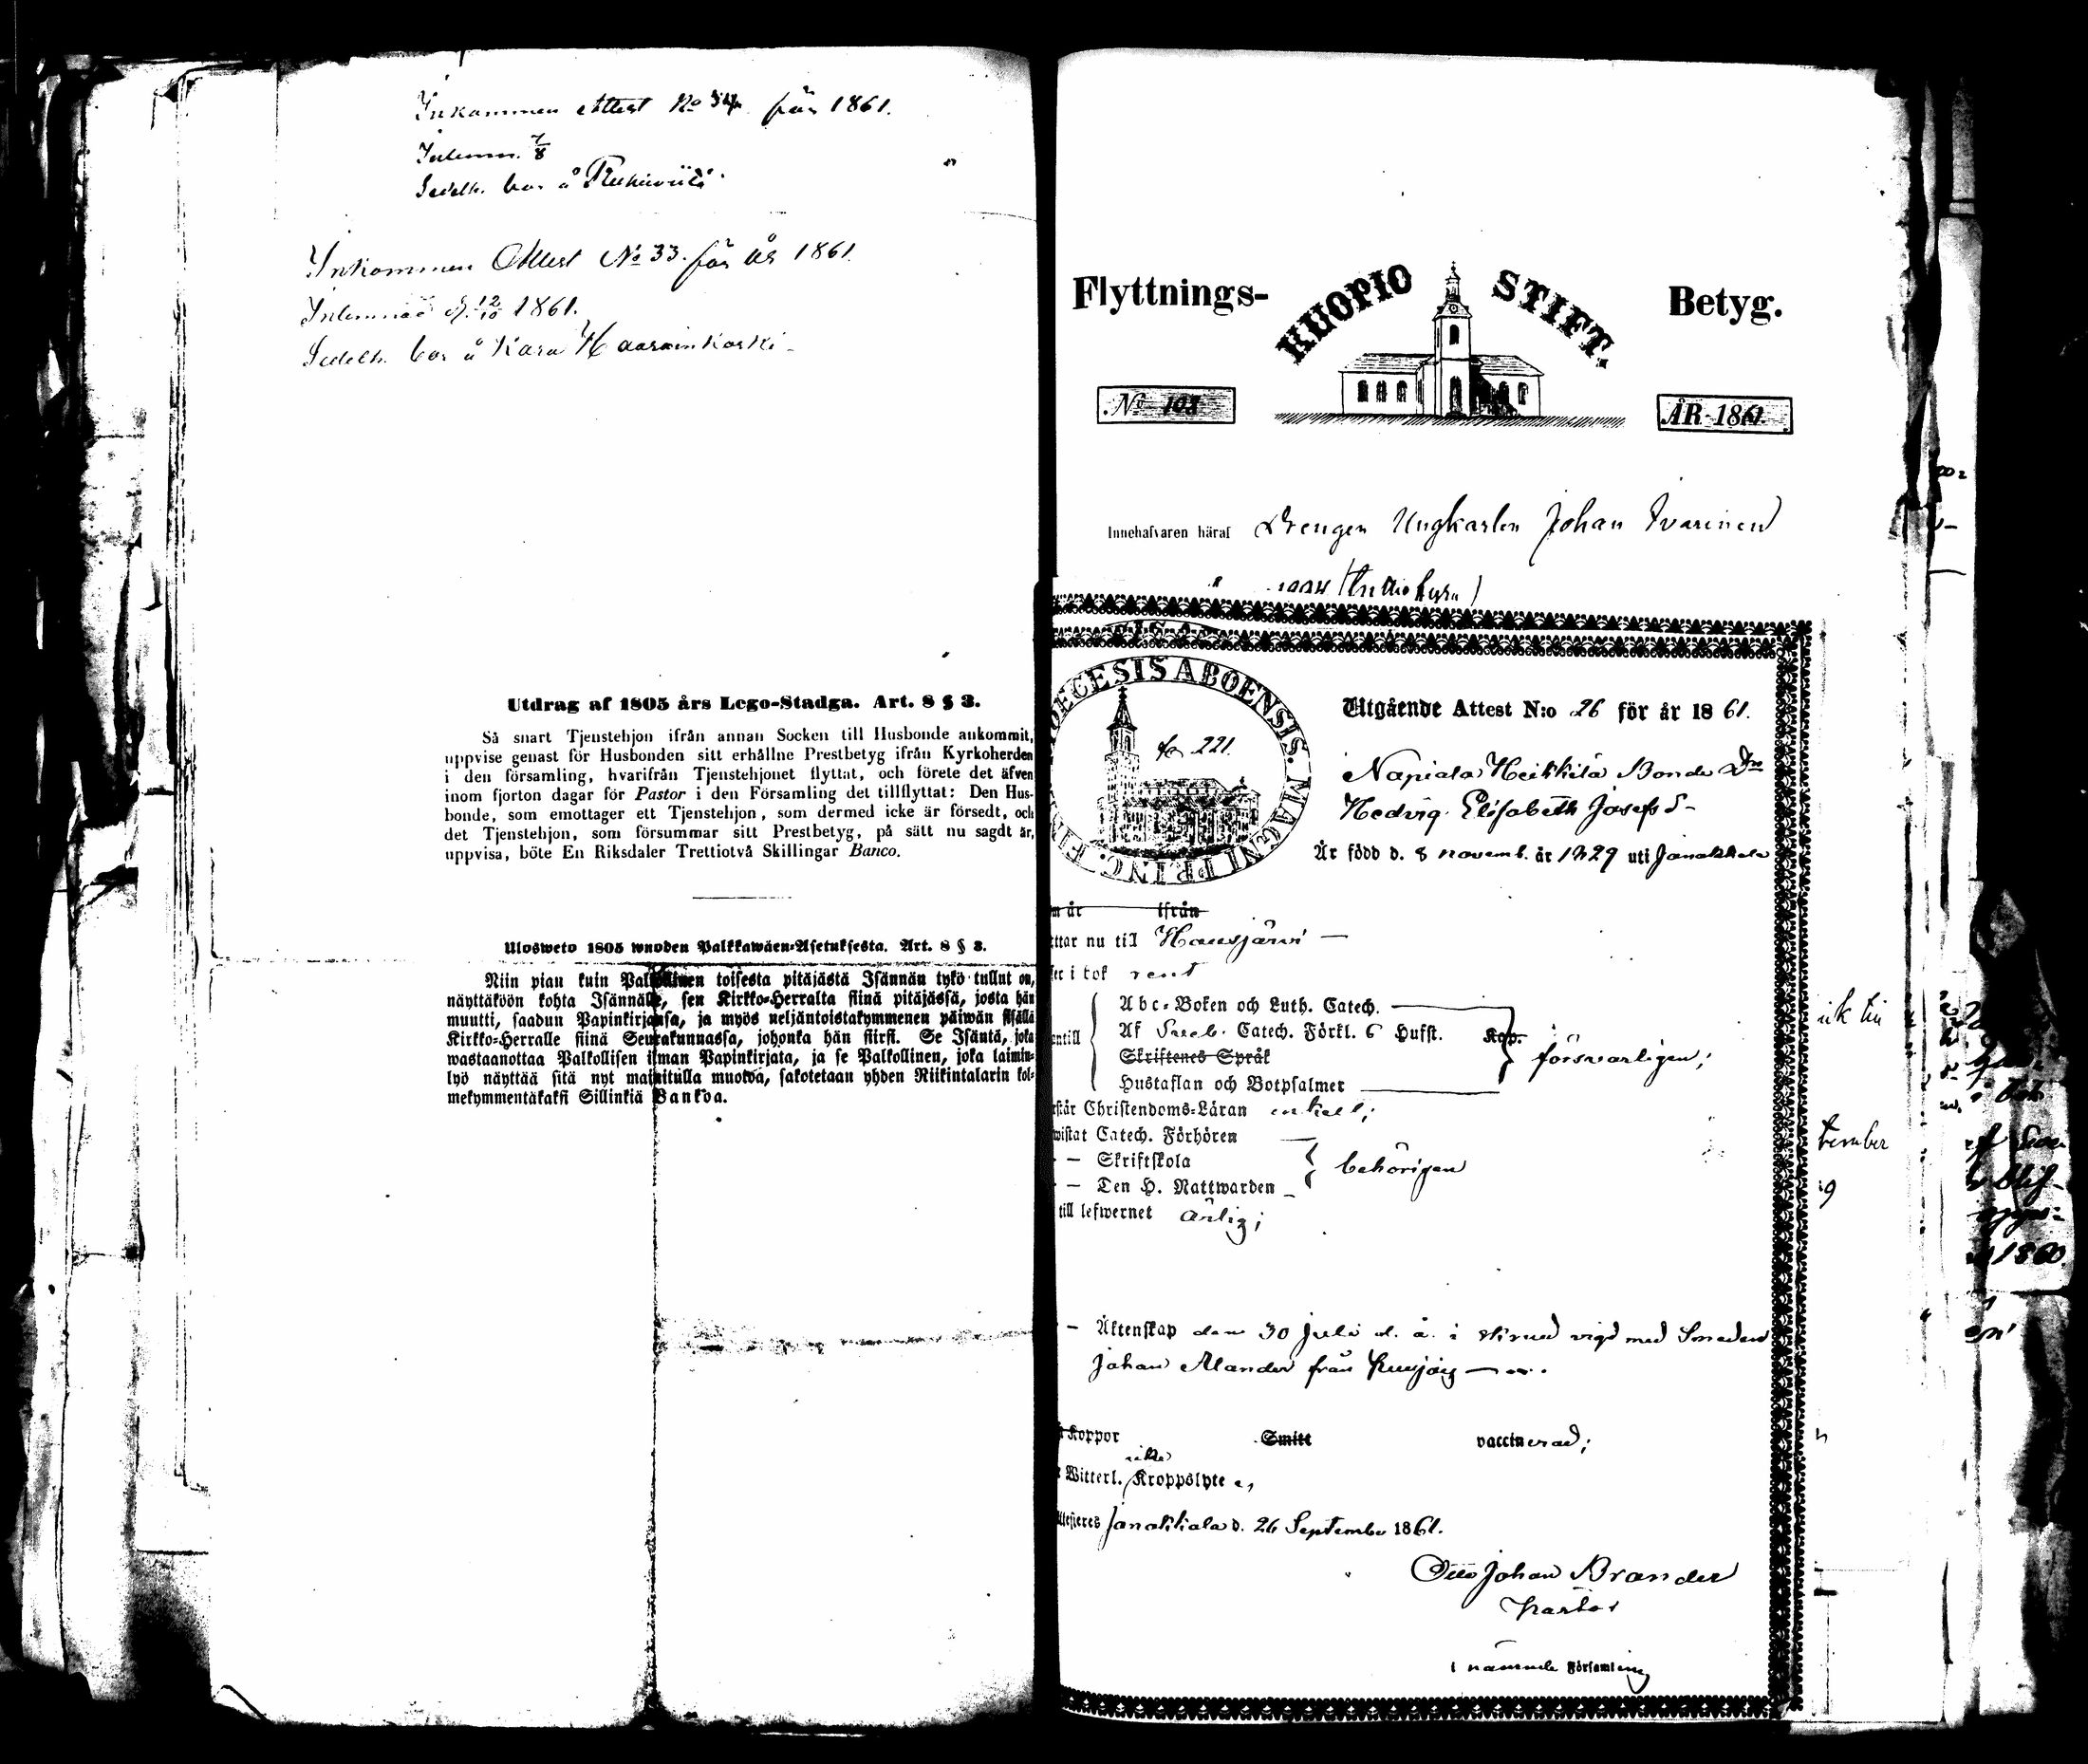 Inkommen Attest No 34 för 1861.
Inlemn. 7/8
Sedelh. bor å
Inkommen Attest No 33 för år 1861.
Inlemnad d. 12/10 1861.
Sedelh. bor å Kara
Utdrag af 1805 års Lego-Stadga. Art. 8 § 3.
Så snart Tjenstehjon ifrån annan Socken till Husbonde ankommit,
uppvise genast för Husbonden sitt erhållne Prestbetyg ifrån Kyrkoherden
i den församling, hvarifrån Tjenstehjonet flyttat, och förete det äfven
inom fjorton dagar för Pastor i den Församling det tillflyttat: Den Hus-
bonde, som emottager ett Tjenstehjon, som dermed icke är försedt, och
det Tjenstehjon, som försummar sitt Prestbetyg, på sätt nu sagdt är,
uppvisa, böte En Riksdaler Trettiotvå Skillingar Banco.
Ulosweto 1805 wuoden Palkkawäen-Asetuksesta. Art. 8 § 3.
Niin pian kuin Palkollinen toisesta pitäjästä Isännän tykö tullut on,
näyttäköön kohta Isännälle, sen Kirkko-Herralta siinä pitäjässä, josta hän
muutti, saadun Papinkirjansa, ja myös neljäntoistakymmenen päiwän sisällä
Kirkko-Herralle siinä Seurakunnassa, johonka hän siirsi. Se Isäntä, joka
wastaanottaa Palkollisen ilman Papinkirjata, ja se Palkollinen, joka laimin-
lyö näyttää sitä nyt mainitulla muotoa, sakotetaan yhden Riikintalarin kol-
mekymmentäkaksi Sillinkiä Bankoa.
Flyttnings- KUOPIO STIFT. Betyg.
No 103 ÅR 1861.
Innehafvaren häraf Drengen Ungkarlen Johan Ivarinen
DIOECESIS ABOENSIS. MAGNI PRINC.
fo 221.
Utgående Attest N:o 26 för år 1861.
Napiala Heikkilä Bonde Dr
Hedvig Elisabeth Josefs d-
Är född d. 8 novemb. år 1829 uti Janakkala
år ifrån
ttar nu till Hausjärvi —
i bok rent
Abc-Boken och Luth. Catech.
Af Sveb. Catech. Förkl. 6 Hufst. Kap. försvarligen;
Skriftenes Språk
Hustaflan och Botpsalmer
Christendoms-Läran enkelt;
wistat Catech. Förhören
— Skriftskola behörigen
— Den H. Nattwarden
till lefwernet ärlig;
— Äktenskap den 30 Juli d. å. i vigd med Smeden
Johan Alander från
Koppor Smitt vaccinerad;
Witterl. icke Kroppslyte
Janakkala d. 26 September 1861.
Otto Johan Brander
Pastor
i nämnde Församling
tember
1860